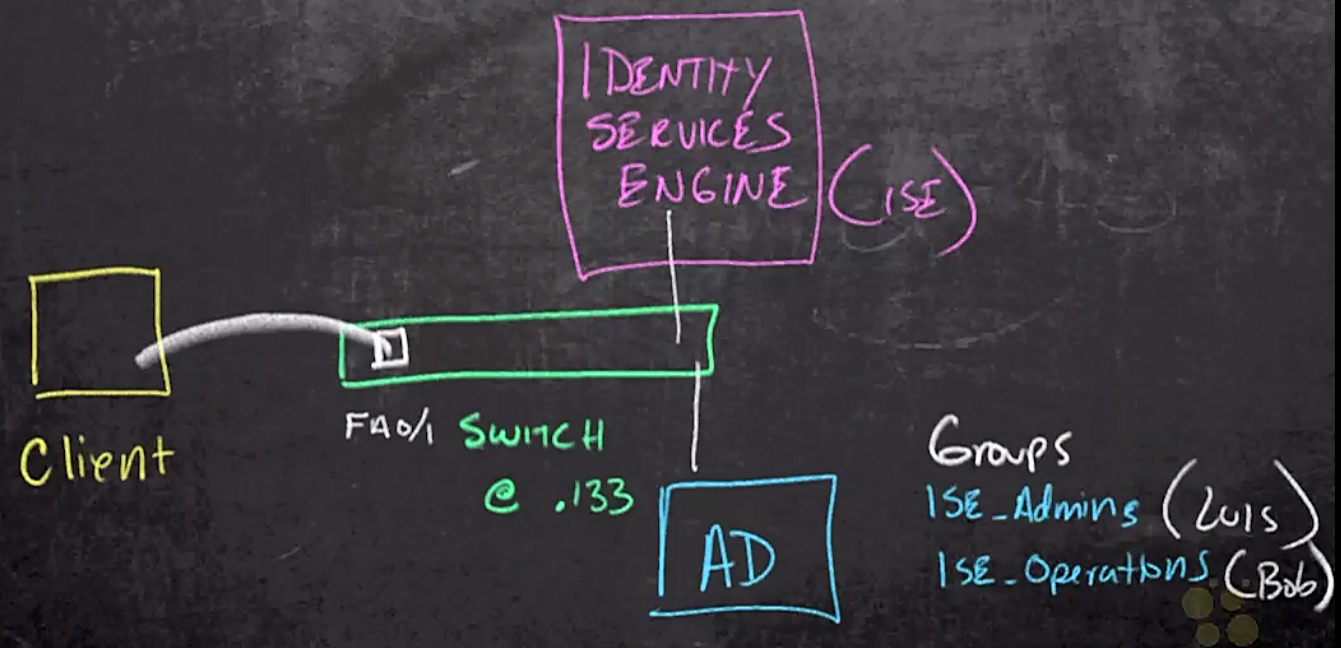 IDENTITY
SERVICES
ENGINE
(ISE)
Client
FA0/1 SWITCH
@ .133
AD
Groups
ISE_Admins (Luis)
ISE_Operations (Bob)